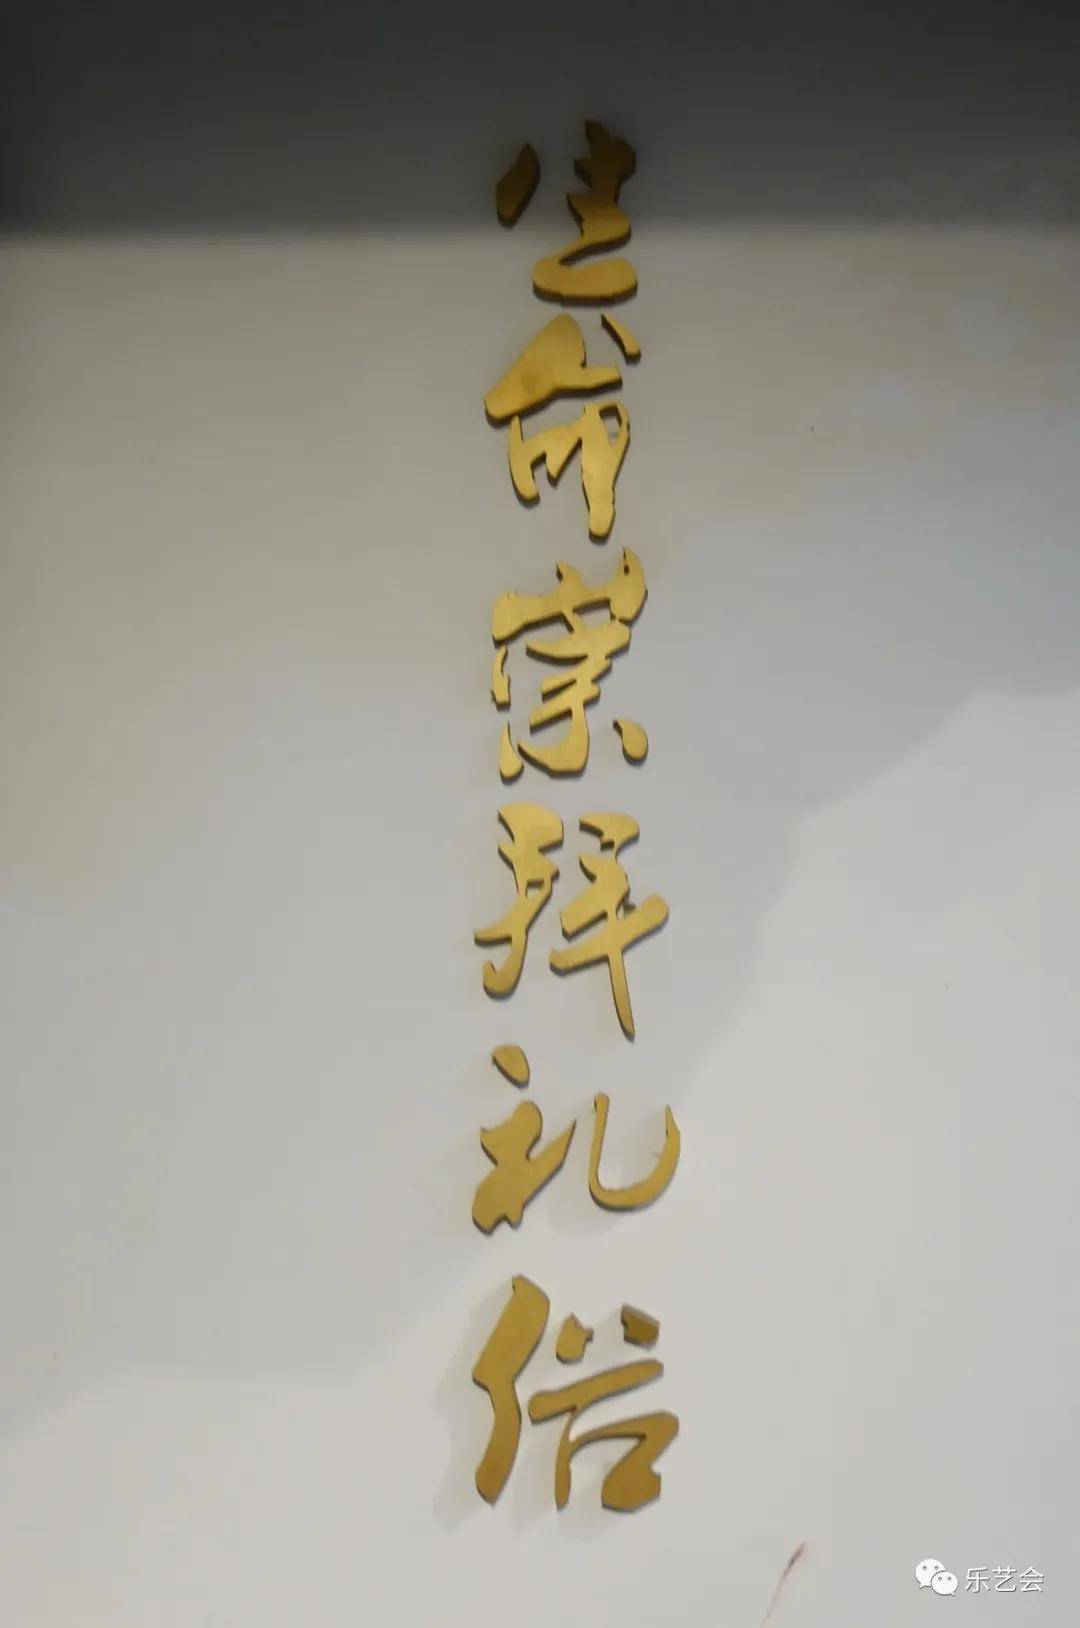 生命崇拜礼俗
乐艺会